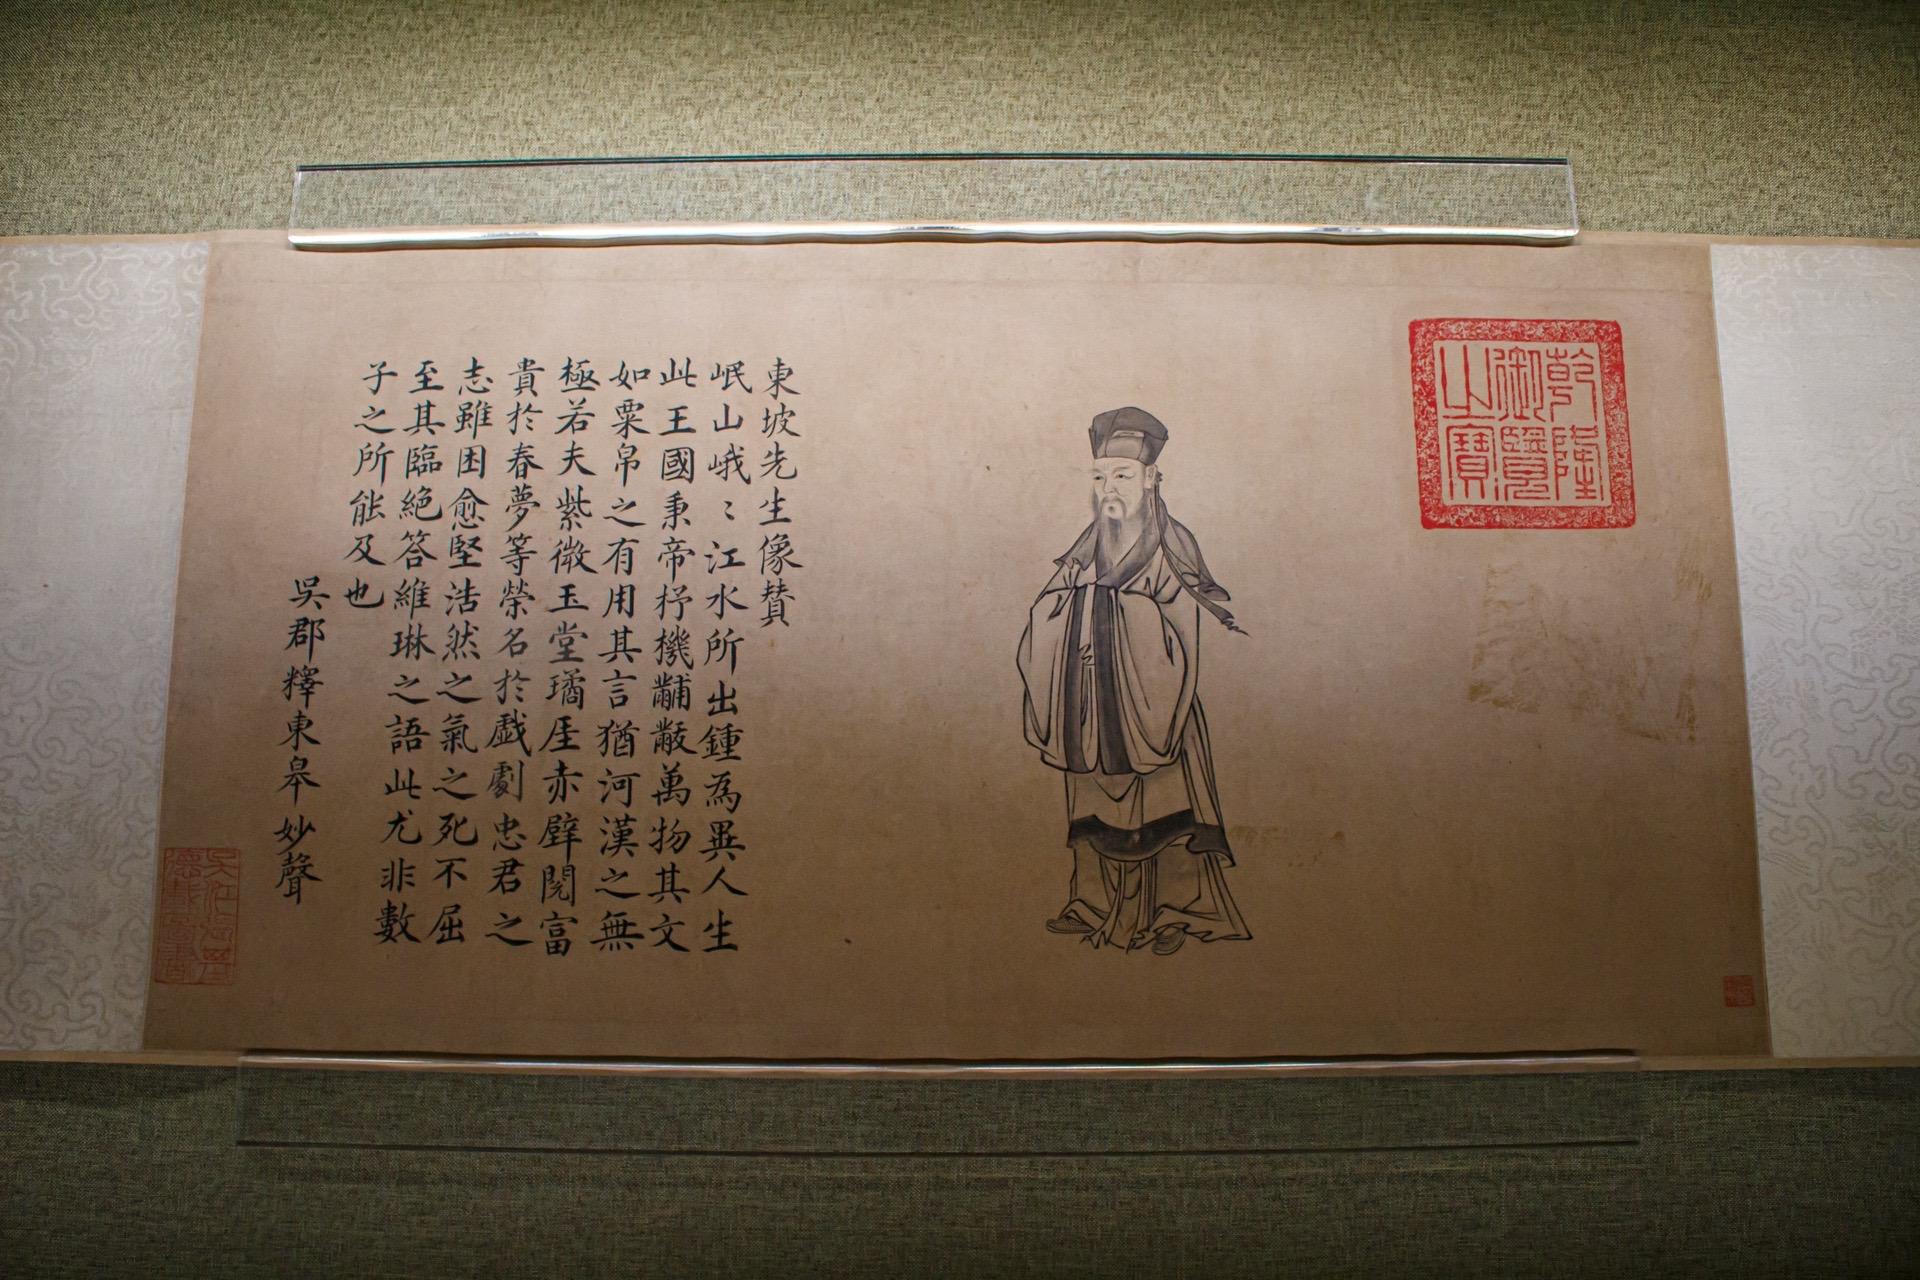 乾隆
御覽
之寶
東坡先生像賛
岷山峨〻江水所出鍾為異人生
此王國秉帝杼機黼黻萬物其文
如粟帛之有用其言猶河漢之無
極若夫紫微玉堂璚厓赤壁閱富
貴於春夢等榮名於戯劇忠君之
志雖困愈堅浩然之氣之死不屈
至其臨絕答維琳之語此尤非數
子之所能及也
吳郡釋東皋妙聲